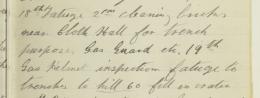 18th Fatigue 2 cos cleaning bricks
near Cloth Hall for trench
purposes Gas Guard etc. 19th
Gas Helmet inspection fatigue to
trenches to hill 60 fill in water